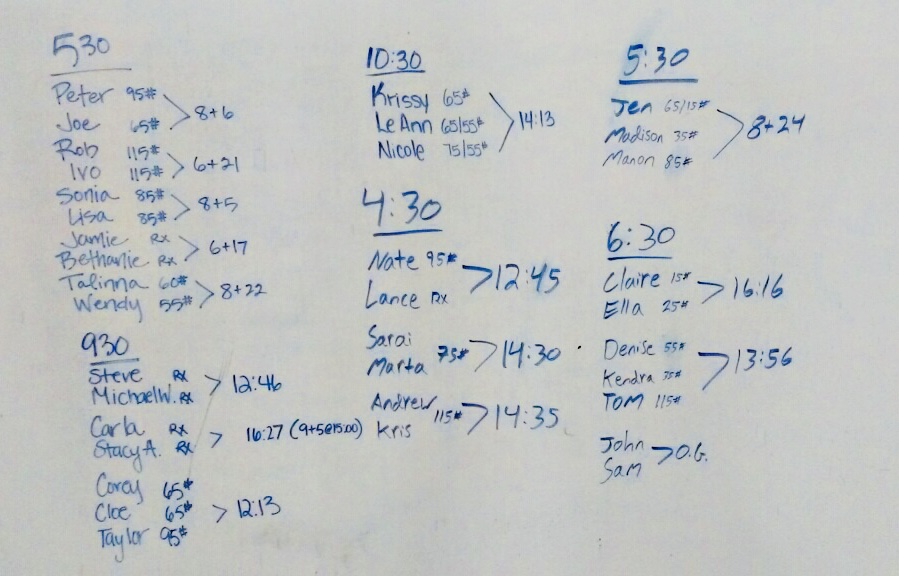 530
Peter 95#
Joe 65#
> 8+6
Rob 115#
Ivo 115#
> 6+21
Sonia 85#
Lisa 85#
> 8+5
Jamie Rx
Bethanie Rx
> 6+17
Talinna 60#
Wendy 55#
> 8+22
930
Steve Rx
Michael W. Rx
> 12:46
Carla Rx
Stacy A. Rx
> 16:27 (9+5@15:00)
Corey 65#
Cloe 65#
Taylor 95#
> 12:13
10:30
Krissy 65#
LeAnn 65/55#
Nicole 75/55#
> 14:13
4:30
Nate 95#
Lance Rx
> 12:45
Sarai
Marta 75#
> 14:30
Andrew
Kris 115#
> 14:35
5:30
Jen 65/15#
Madison 35#
Manon 85#
> 8+24
6:30
Claire 15#
Ella 25#
> 16:16
Denise 55#
Kendra 35#
Tom 115#
> 13:56
John
Sam
> O.G.